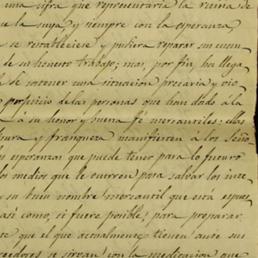 una cifra que representaria la ruina de
la suya y siempre con la esperanza
se restableciese y pudiera reparar su
de su honesto trabajo; mas, por fin, ha llega
sostener una situacion precaria y
perjuicio de las personas que han dado a la
á su honor y buena fé mercantiles: dos
y franqueza manifiesten á los Seño
esperanzas que puede tener para lo futuro
los medios que le ocurren para salvar los inte
su buen nombre mercantil que está
asi como, si fuere posible, para preparar
que el que actualmente tienen ante sus
se sirvan con la meditacion que